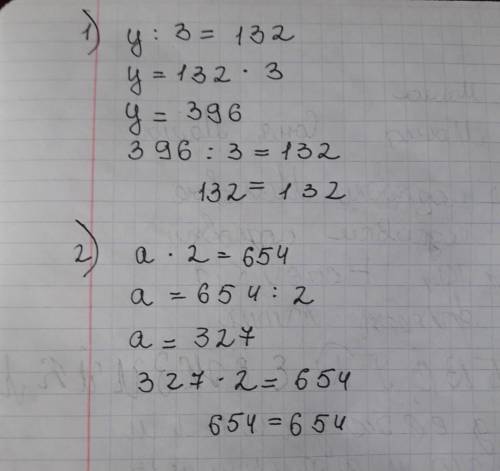 1) y : 3 = 132
y = 132 · 3
y = 396
396 : 3 = 132
132 = 132
2) a · 2 = 654
a = 654 : 2
a = 327
327 · 2 = 654
654 = 654